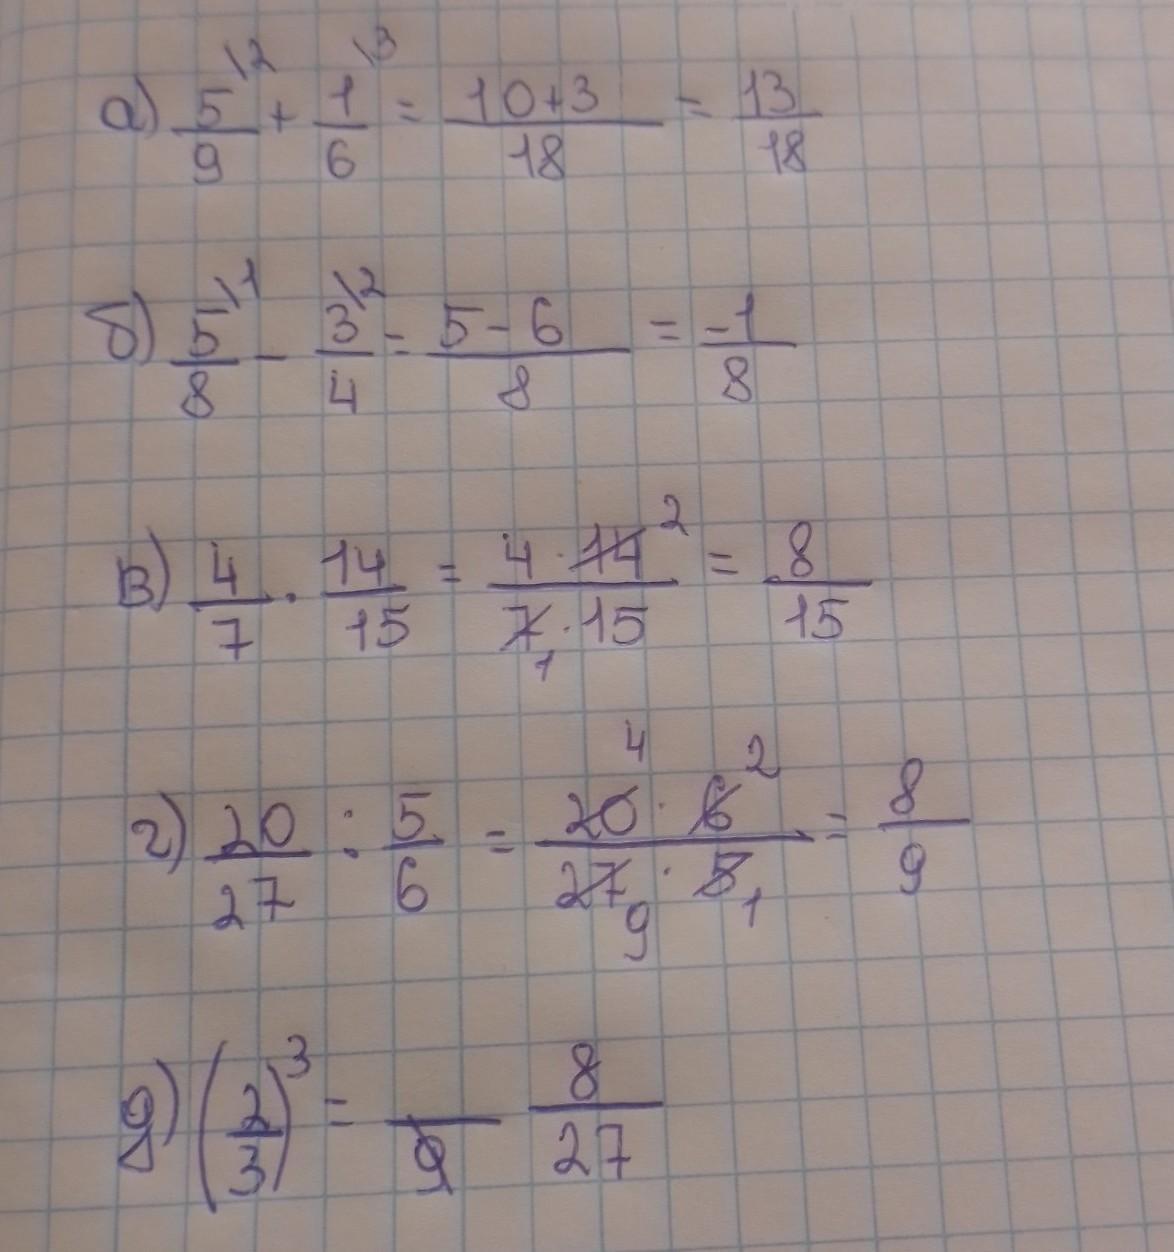 а) 5\2/9 + 1\3/6 = 10+3/18 = 13/18
б) 5\1/8 - 3\2/4 = 5-6/8 = -1/8
в) 4/7 · 14/15 = 4·14 2/7 1·15 = 8/15
г) 20/27 : 5/6 = 20 4·6 2/27 9·5 1 = 8/9
д) (2/3)³ = /9 8/27